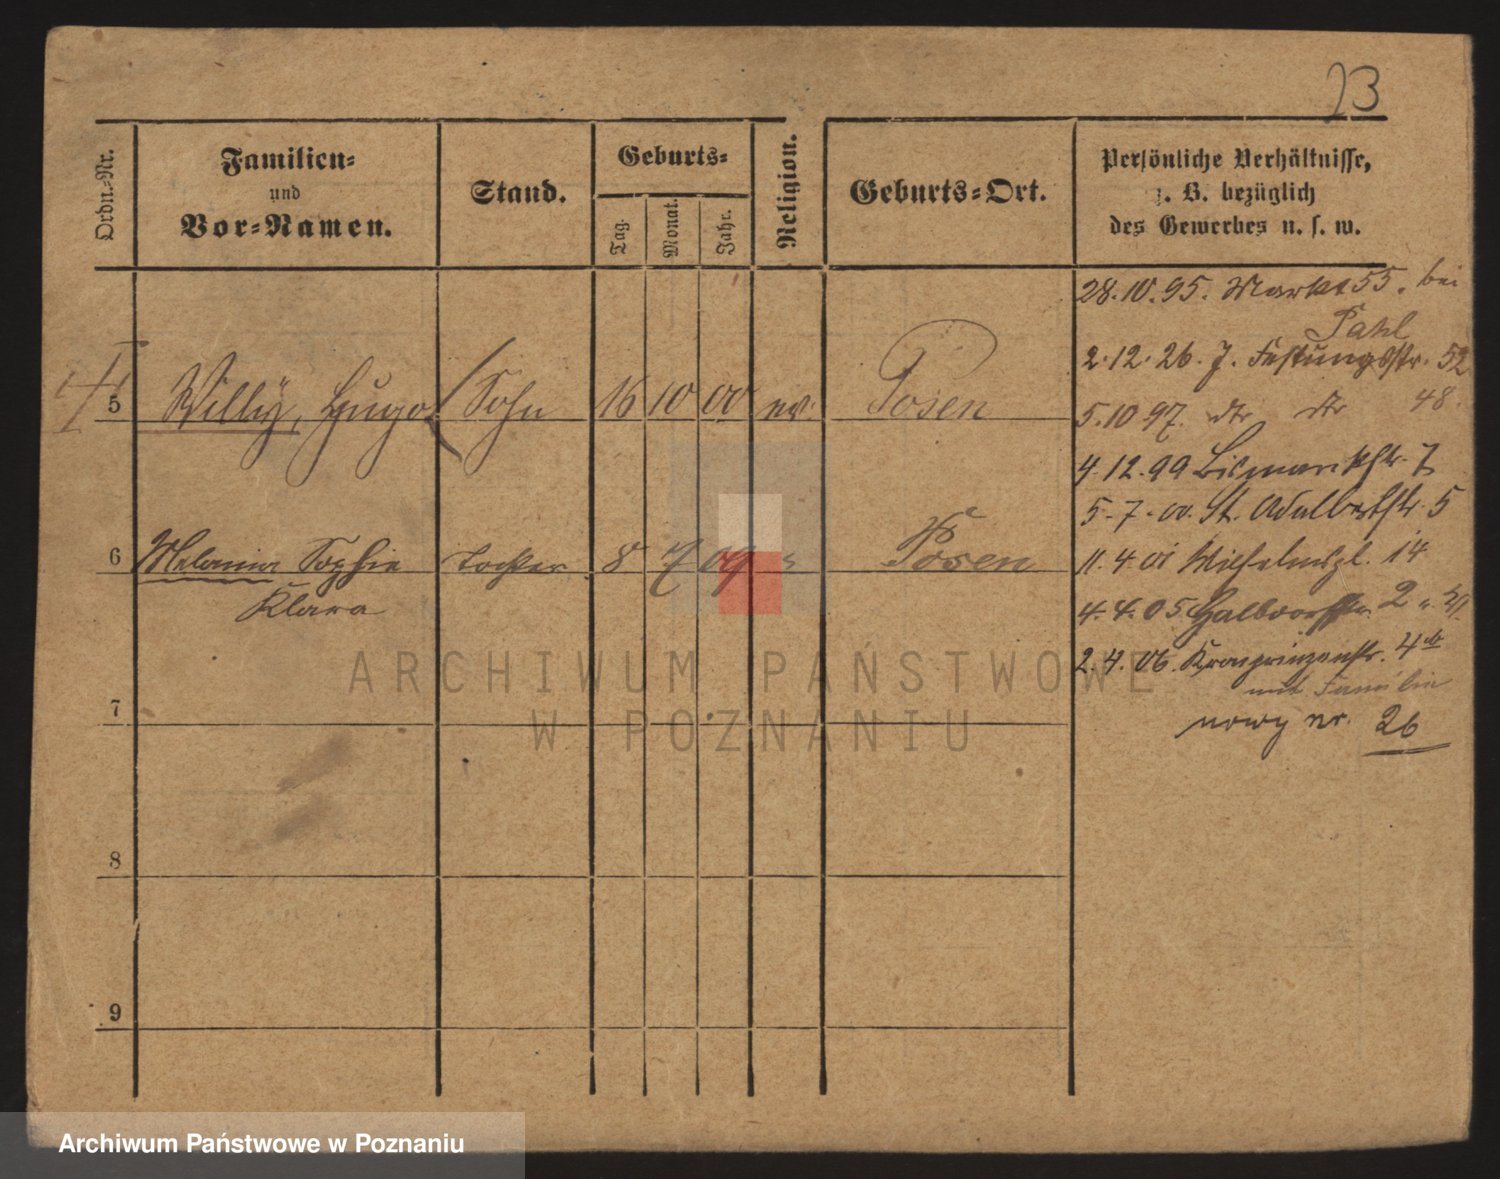 23
Ordn.-Nr.
Familien-
und
Vor-Namen.
Stand.
Geburts-
Tag.
Monat.
Jahr.
Religion.
Geburts-Ort.
Persönliche Verhältnisse,
z. B. bezüglich
des Gewerbes u. s. w.
28.10.95. Markt 55. bei
Pahl
2.12.26. J. Festungsstr. 52
5.10 97. dto dto 48.
4.12.99 Bismarckstr. 7
5.7.00. St. Adalbertstr. 5
11.4.01 Wilhelmspl. 14
4.4.05 Halbdorfstr. 2
2.4.06. Kronprinzenstr. 4
mit Familie
nowy nr. 26
5 Willy, Hugo Sohn 16 10 00 ev. Posen
6 Melania Sophie Tochter 8 7 09 " Posen
Klara
7
8
9
ARCHIWUM PAŃSTWOWE
W POZNANIU
Archiwum Państwowe w Poznaniu